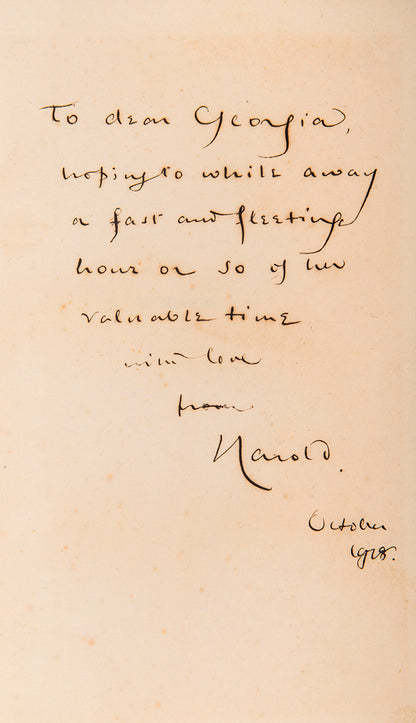 To dear Georgia,
hoping to while away
a fast and fleeting
hour or so of her
valuable time
with love
from
Harold.
October
1928.